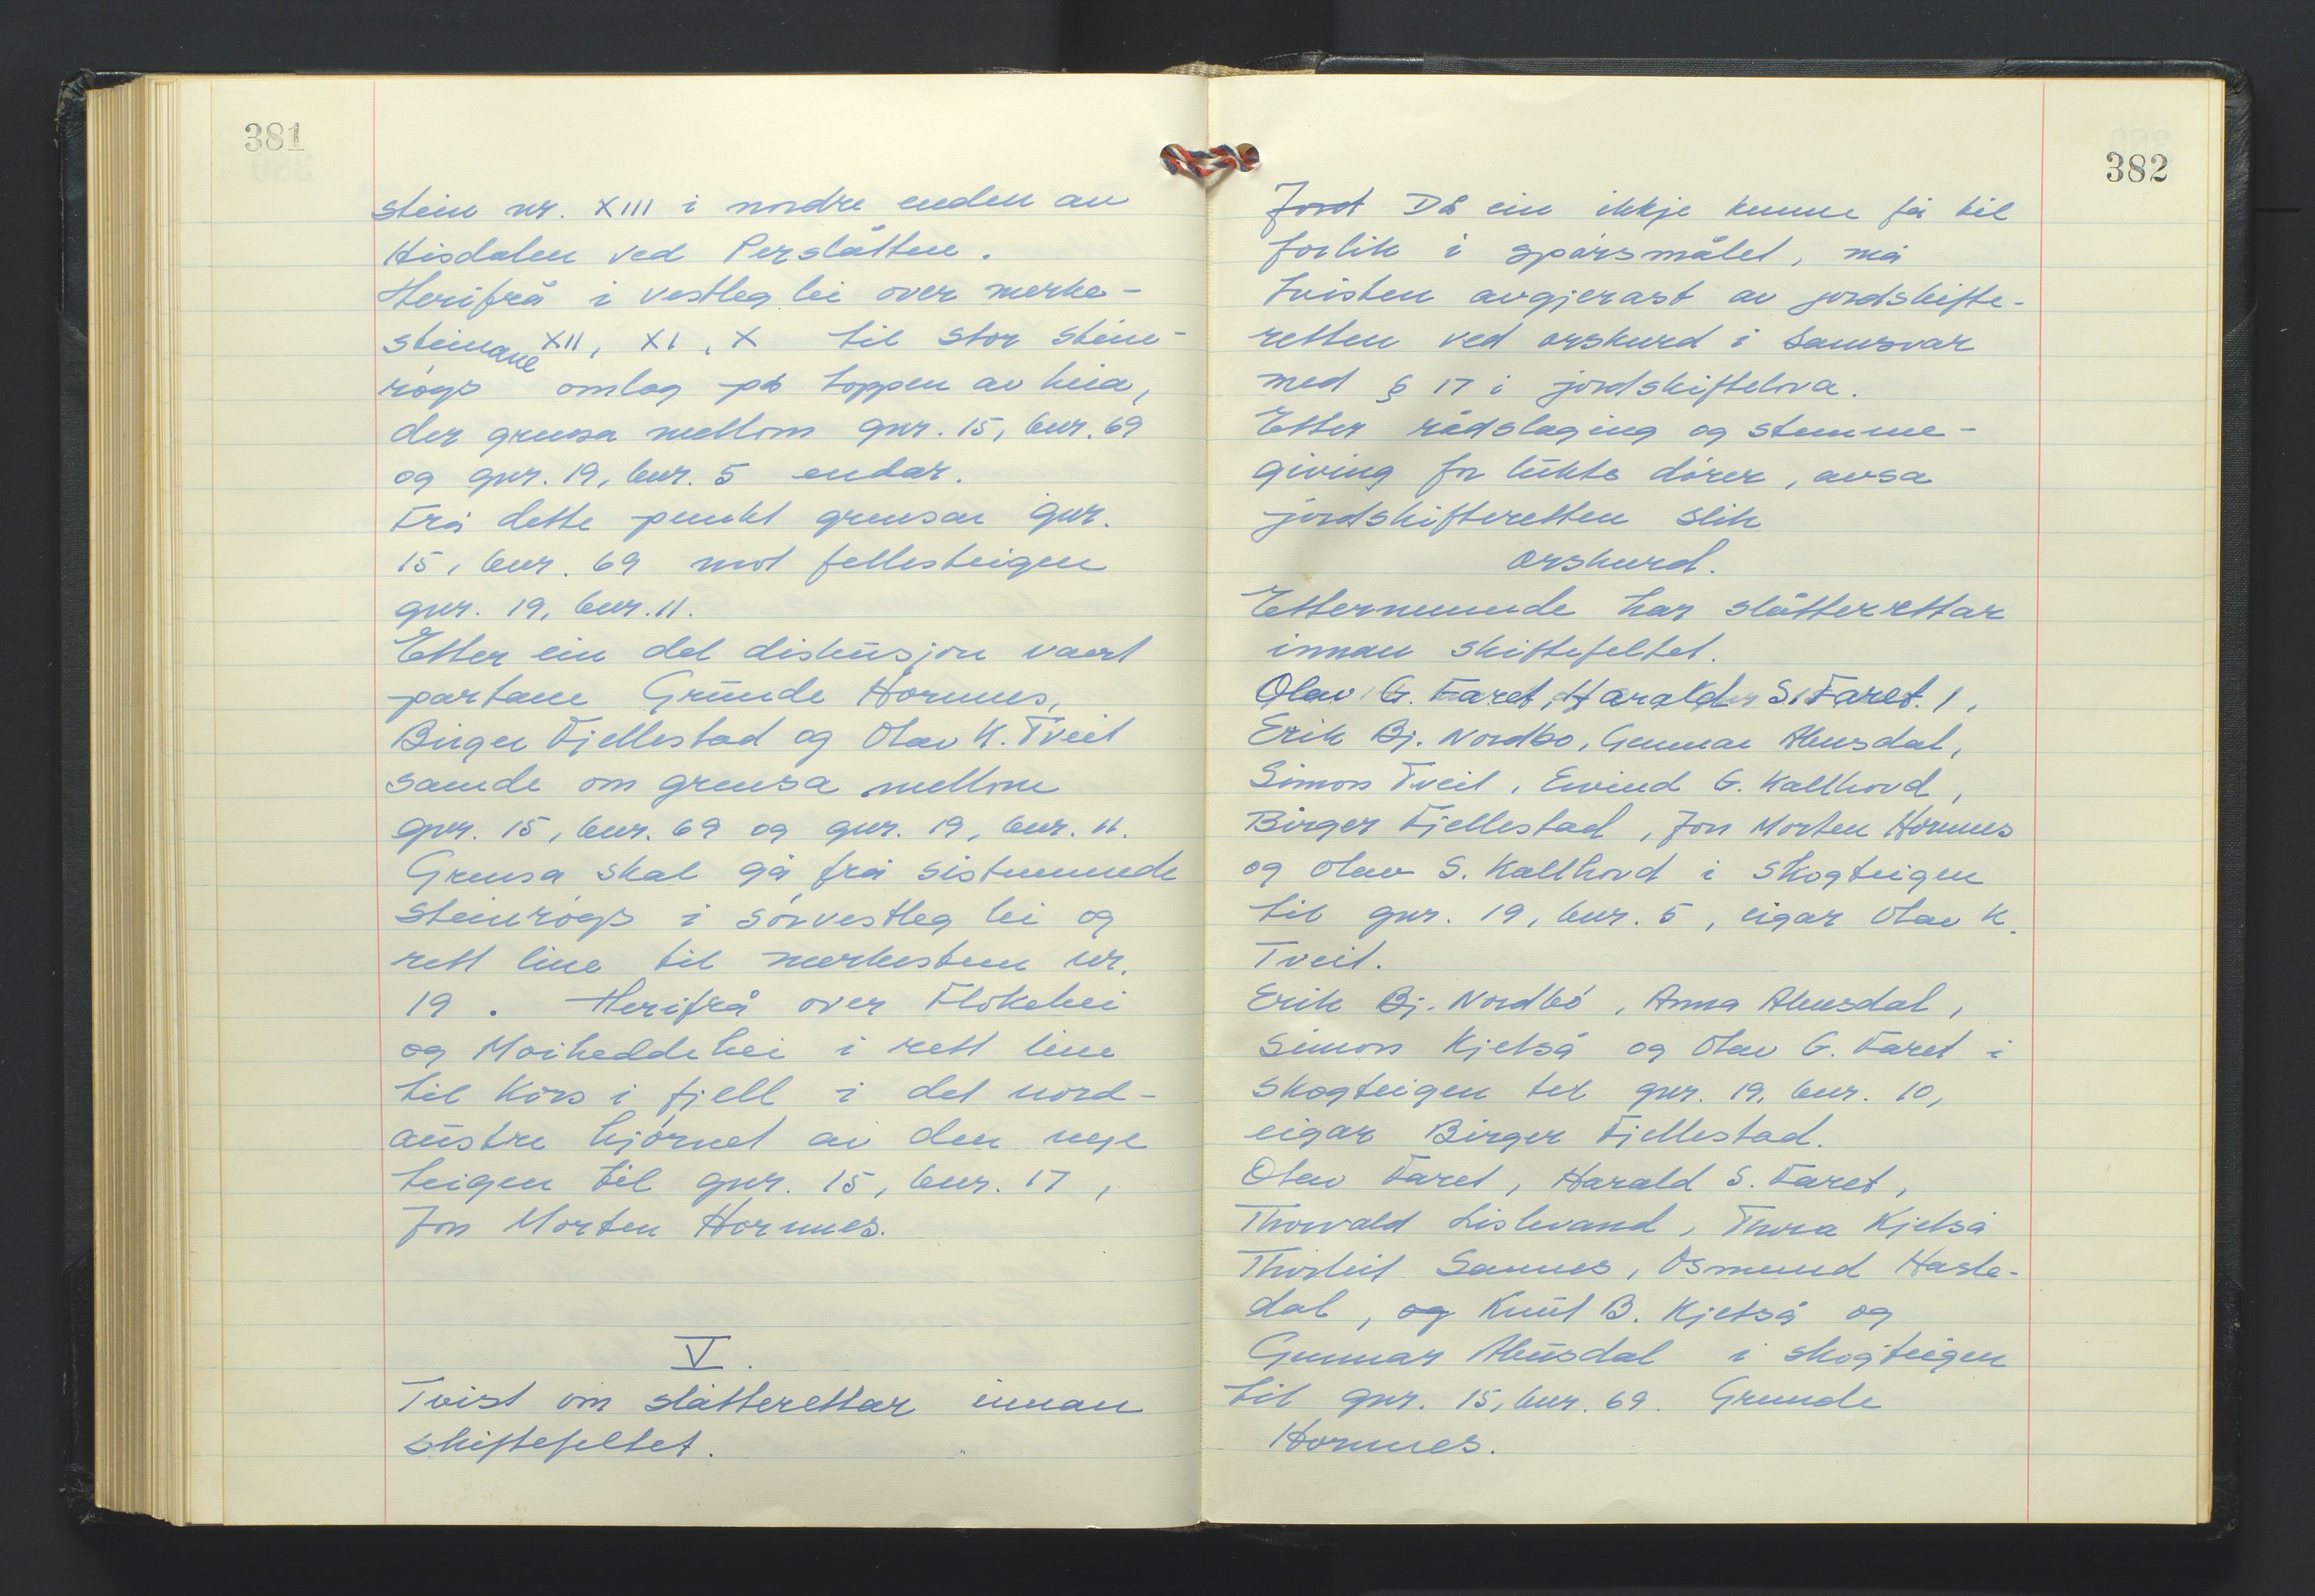 381
stein nr. XIII i nordre enden av
Hisdalen ved Perslåtten.
Herifrå i vestleg lei over merke-
steinane XII, XI, X til stor stein-
røys omlag på toppen av heia,
der grensa mellom gnr. 15, bnr. 69
og gnr. 19, bnr. 5 endar.
Frå dette punkt grensar gnr.
15, bnr. 69 mot fellesteigen
gnr. 19, bnr. 11.
Etter ein del diskusjon vart
partane Grunde Hornnes,
Birger Fjellestad og Olav K. Tveit
samde om grensa mellom
gnr. 15, bnr. 69 og gnr. 19, bnr. 11.
Grensa skal gå frå sistnemnde
steinrøys i sørvestleg lei og
rett line til merkestein nr.
19. Herifrå over Flokehei
og Moiheddehei i rett line
til kors i fjell i det nord-
austre hjørnet av den nye
teigen til gnr. 15, bnr. 17,
Jon Morten Hornnes.
V.
Tvist om slåtterettar innan
skiftefeltet.
382
Jord Då ein ikkje kunne få til
forlik i spørsmålet, må
tvisten avgjerast av jordskifte-
retten ved orskurd i samsvar
med § 17 i jordskiftelova.
Etter rådslaging og stemme-
giving for lukte dører, avsa
jordskifteretten slik
orskurd.
Etternemnde har slåtterettar
innan skiftefeltet.
Olav G. Faret, Harald S. Faret,
Erik Bj. Nordbø, Gunnar Abusdal,
Simon Tveit, Eivind G. Kallhovd,
Birger Fjellestad, Jon Morten Hornnes
og Olav S. Kallhovd i skogteigen
til gnr. 19, bnr. 5, eigar Olav K.
Tveit.
Erik Bj. Nordbø, Anna Abusdal,
Simon Kjetså og Olav G. Faret i
skogteigen til gnr. 19, bnr. 10,
eigar Birger Fjellestad.
Olav Faret, Harald S. Faret,
Thorvald Lislevand, Thora Kjetså
Thorleif Sannes, Osmund Hasle-
dal, og Knut B. Kjetså og
Gunnar Abusdal i skogteigen
til gnr. 15, bnr. 69. Grunde
Hornnes.